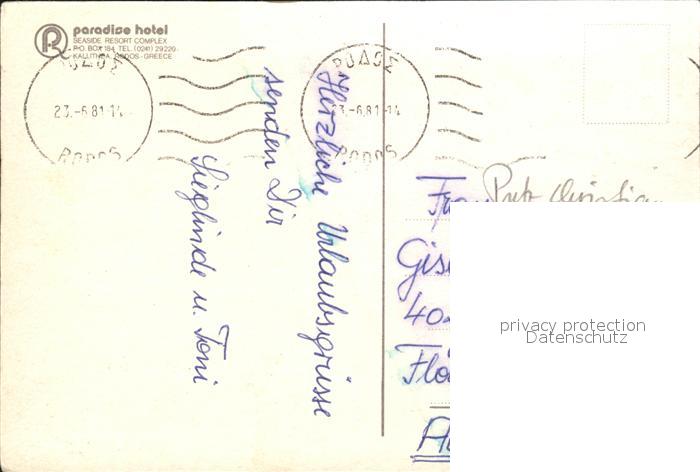 paradise hotel
SEASIDE RESORT COMPLEX
P.O. BOX 184 TEL. (0241) 29220
KALLITHEA, RODOS - GREECE
ΡΟΔΟΣ
23.-6.81-14
RODOS
ΡΟΔΟΣ
23.-6.81-14
RODOS
Herzliche Urlaubsgrüsse
senden Dir
Sieglinde u. Toni
privacy protection
Datenschutz